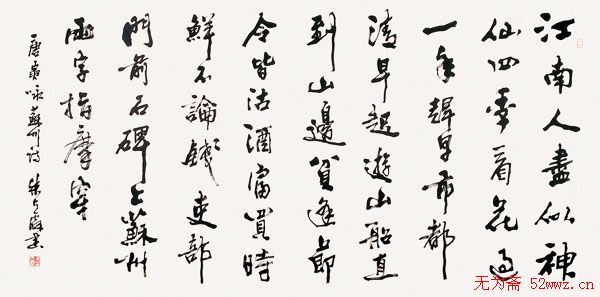 江南人盡似神
仙四季看花過
一年趕早市都
清早起遊山船直
到山邊貧逢節
令皆沽酒富買時
鮮不論錢吏部
門前石碑上蘇州
兩字指摩穿
唐寅咏蘇州詩 書
无为斋 52wwz.cn